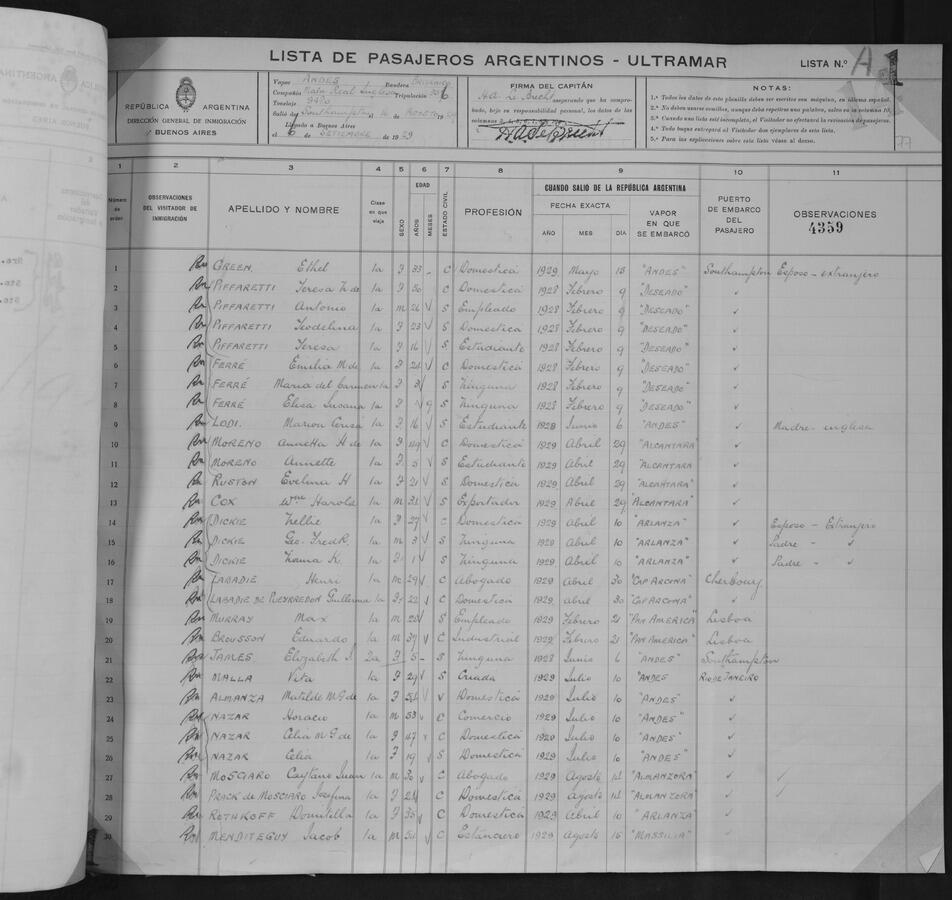 LISTA DE PASAJEROS ARGENTINOS - ULTRAMAR
LISTA N.º A 1
REPÚBLICA ARGENTINA
DIRECCIÓN GENERAL DE INMIGRACIÓN
BUENOS AIRES
Vapor ANDES Bandera
Compañía Mala Real Inglesa Tripulación
Tonelaje 9480
Salió de Southampton el 16 Agosto 19
Llegado a Buenos Aires
el 6 de SETIEMBRE de 1929
FIRMA DEL CAPITÁN
asegurando que ha comprobado, bajo su responsabilidad personal, los datos de las
columnas
NOTAS:
1.º Todos los datos de esta planilla deben ser escritos con máquina, en idioma español.
2.º No deben usarse comillas, aunque deba repetirse una palabra, salvo en la columna 10.
3.º Cuando una lista esté incompleta, el Visitador no efectuará la revisación de pasajeros.
4.º Todo buque entregará al Visitador dos ejemplares de esta lista.
5.º Para las explicaciones sobre esta lista véase al dorso.
77
1 2 3 4 5 6 7 8 9 10 11
Número de orden
OBSERVACIONES DEL VISITADOR DE INMIGRACIÓN
APELLIDO Y NOMBRE
Clase en que viaja
SEXO
EDAD
AÑOS
MESES
ESTADO CIVIL
PROFESIÓN
CUANDO SALIO DE LA REPÚBLICA ARGENTINA
FECHA EXACTA
AÑO MES DIA
VAPOR EN QUE SE EMBARCÓ
PUERTO DE EMBARCO DEL PASAJERO
OBSERVACIONES
4359
1 GREEN Ethel 1a F 33 - C Domestica 1929 Mayo 18 "ANDES" Southampton Esposo - extranjero
2 PIFFARETTI Teresa Z. de 1a F 50 C Domestica 1928 Febrero 9 "DESEADO" ✓
3 PIFFARETTI Antonio 1a M 26 ✓ S Empleado 1928 Febrero 9 "DESEADO" ✓
4 PIFFARETTI Teodelina 1a F 23 ✓ S Domestica 1928 Febrero 9 "DESEADO" ✓
5 PIFFARETTI Teresa 1a F 16 ✓ S Estudiante 1928 Febrero 9 "DESEADO" ✓
6 FERRÉ Emilia M. de 1a F 24 ✓ C Domestica 1928 Febrero 9 "DESEADO" ✓
7 FERRÉ Maria del Carmen 1a F 3 S Ninguna 1928 Febrero 9 "DESEADO" ✓
8 FERRÉ Elisa Susana 1a F 9 S Ninguna 1928 Febrero 9 "DESEADO" ✓
9 LODI. Marion 1a F 16 ✓ S Estudiante 1928 Junio 6 "ANDES" ✓ Madre - inglesa
10 MORENO Annetta H de 1a F C Domestica 1929 Abril 29 "ALCANTARA" ✓
11 MORENO Annette 1a F 5 ✓ S Estudiante 1929 Abril 29 "ALCANTARA" ✓
12 RUSTON Evelina H 1a F 21 ✓ S Domestica 1929 Abril 29 "ALCANTARA" ✓
13 COX Wm Harold 1a M 31 ✓ S Exportador 1929 Abril 29 "ALCANTARA" ✓
14 DICKIE Nellie 1a F 27 ✓ C Domestica 1929 Abril 10 "ARLANZA" ✓ Esposo - Extranjero
15 DICKIE Geo. Fredk. 1a M 3 ✓ S Ninguna 1929 Abril 10 "ARLANZA" ✓ Padre - ✓
16 DICKIE K. 1a F 1 ✓ S Ninguna 1929 Abril 10 "ARLANZA" ✓ Padre - ✓
17 LABADIE Henri 1a M 29 ✓ C Abogado 1929 Abril 30 "CAP ARCONA" Cherbourg
18 LABADIE DE PUEYRREDON Guillerma 1a F 22 ✓ C Domestica 1929 Abril 30 "CAP ARCONA" ✓
19 MURRAY Max 1a M 28 ✓ S Empleado 1929 Febrero 21 "PAN AMERICA" Lisboa
20 BROUSSON Eduardo 1a M 37 ✓ C Industrial 1929 Febrero 21 "PAN AMERICA" Lisboa
21 JAMES Elizabeth J. 2a F 5 - S Ninguna 1928 Junio 6 "ANDES" Southampton
22 MALLA Vita 1a F 29 ✓ S Criada 1929 Julio 10 "ANDES RIO DE JANEIRO
23 ALMANZA Matilde M G de 1a F 54 ✓ V Domestica 1929 Julio 10 "ANDES" ✓
24 NAZAR Horacio 1a M 53 ✓ C Comercio 1929 Julio 10 "ANDES" ✓
25 NAZAR Celia M G de 1a F 47 C Domestica 1929 Julio 10 "ANDES" ✓
26 NAZAR Celia 1a F 19 ✓ S Domestica 1929 Julio 10 "ANDES" ✓
27 MOSCIARO Caytano Juan 1a M 30 ✓ C Abogado 1929 Agosto 14 "ALMANZORA" ✓ ✓
28 PRACK de MOSCIARO Josefina 1a F 24 C Domestica 1929 Agosto 14 "ALMANZORA" ✓
29 ROTHKOFF Domitilla 1a F 35 ✓ C Domestica 1929 Abril 10 "ARLANZA" ✓
30 MENDITEGUY Jacob 1a M 54 ✓ C Estanciero 1929 Agosto 15 "MASSILIA" ✓